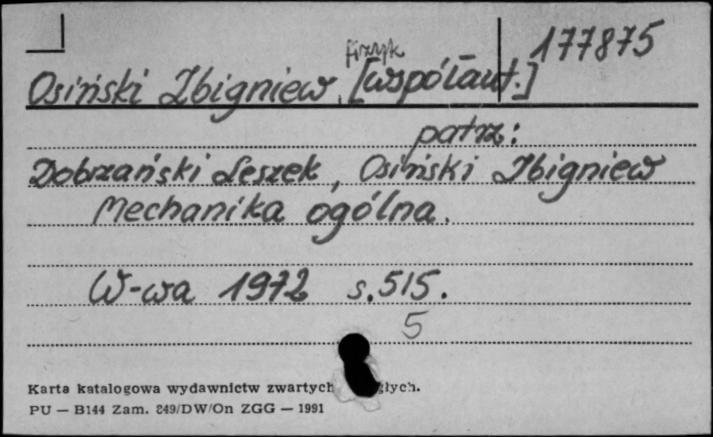 fizyk 177875
Osiński Zbigniew, [współaut.]
patrz:
Dobrzański Leszek, Osiński Zbigniew
Mechanika ogólna.
W-wa 1972 s. 515.
5
Karta katalogowa wydawnictw zwartych
PU — B144 Zam. 849/DW/On ZGG — 1991